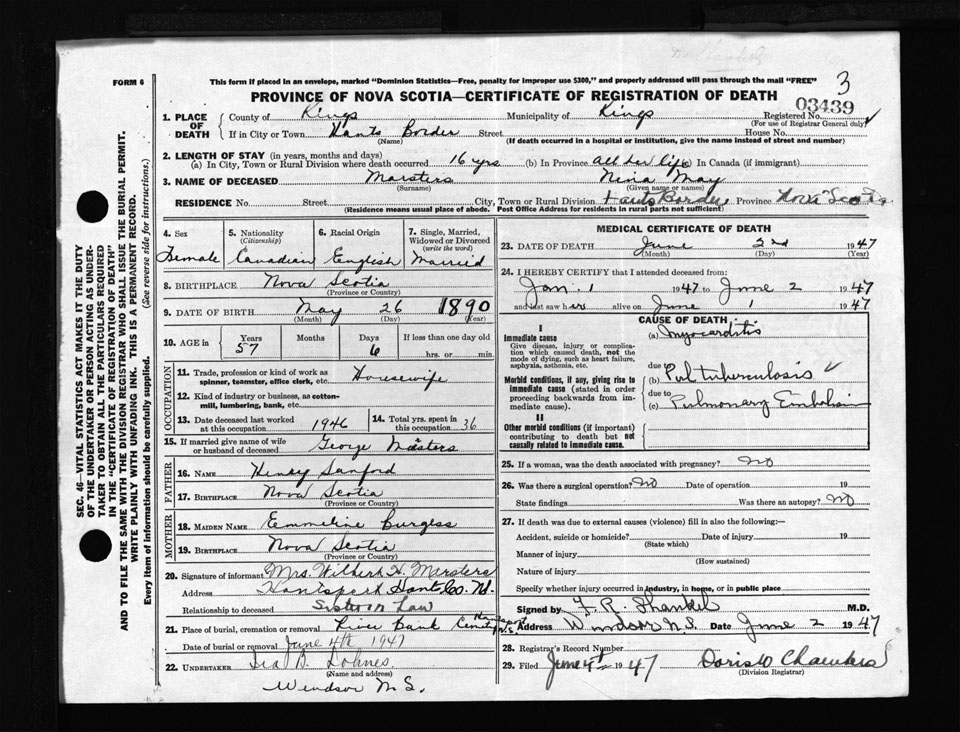 3
FORM 6
This form if placed in an envelope, marked "Dominion Statistics—Free, penalty for improper use $300," and properly addressed will pass through the mail "FREE"
PROVINCE OF NOVA SCOTIA—CERTIFICATE OF REGISTRATION OF DEATH
03439
1. PLACE OF DEATH County of Kings Municipality of Kings Registered No.
(For use of Registrar General only)
If in City or Town Hants Border Street House No.
(If death occurred in a hospital or institution, give the name instead of street and number)
2. LENGTH OF STAY (in years, months and days)
(a) In City, Town or Rural Division where death occurred 16 yrs (b) In Province all her life (c) In Canada (if immigrant)
3. NAME OF DECEASED Marsters Nina May
(Surname) (Given name or names)
RESIDENCE No. Street City, Town or Rural Division Hants Border Province Nova Scotia
(Residence means usual place of abode. Post Office Address for residents in rural parts not sufficient)
4. Sex Female
5. Nationality (Citizenship) Canadian
6. Racial Origin English
7. Single, Married, Widowed or Divorced (write the word) Married
8. BIRTHPLACE Nova Scotia
(Province or Country)
9. DATE OF BIRTH May 26 1890
(Month) (Day) (Year)
10. AGE in Years 57 Months Days 6 If less than one day old
hrs. or min.
OCCUPATION
11. Trade, profession or kind of work as spinner, teamster, office clerk, etc. Housewife
12. Kind of industry or business, as cotton-mill, lumbering, bank, etc.
13. Date deceased last worked at this occupation 1946
14. Total yrs. spent in this occupation 36
15. If married give name of wife or husband of deceased George Masters
FATHER
16. NAME Henry Sanford
17. BIRTHPLACE Nova Scotia
(Province or Country)
MOTHER
18. MAIDEN NAME Emmeline Burgess
19. BIRTHPLACE Nova Scotia
(Province or Country)
20. Signature of informant Mrs. Wilbert H. Marsters
Address Hantsport Hants Co. N.S.
Relationship to deceased Sister in Law
21. Place of burial, cremation or removal River Bank Hantsport N.S.
Date of burial or removal June 4th 1947
22. UNDERTAKER Ira D. Lohnes
(Name and address)
Windsor N.S.
MEDICAL CERTIFICATE OF DEATH
23. DATE OF DEATH June 2nd 1947
(Month) (Day) (Year)
24. I HEREBY CERTIFY that I attended deceased from:
Jan. 1 1947 to June 2 1947
and last saw her alive on June 1 1947
CAUSE OF DEATH
I
Immediate cause
Give disease, injury or complication which caused death, not the mode of dying, such as heart failure, asphyxia, asthenia, etc.
(a) Myocarditis
due to
(b) Pul tuberculosis
Morbid conditions, if any, giving rise to immediate cause (stated in order proceeding backwards from immediate cause).
due to
(c) Pulmonary Embolism
II
Other morbid conditions (if important) contributing to death but not causally related to immediate cause.
25. If a woman, was the death associated with pregnancy? No
26. Was there a surgical operation? No Date of operation 19
State findings Was there an autopsy? No
27. If death was due to external causes (violence) fill in also the following:—
Accident, suicide or homicide? Date of injury 19
(State which)
Manner of injury
(How sustained)
Nature of injury
Specify whether injury occurred in industry, in home, or in public place
Signed by F. R. Shankel M.D.
Address Windsor N.S. Date June 2 1947
28. Registrar's Record Number
29. Filed June 4th 1947 Doris W Chambers
(Division Registrar)
SEC. 46—VITAL STATISTICS ACT MAKES IT THE DUTY
OF THE UNDERTAKER OR PERSON ACTING AS UNDER-
TAKER TO OBTAIN ALL THE PARTICULARS REQUIRED
IN THE "CERTIFICATE OF REGISTRATION OF DEATH"
AND TO FILE THE SAME WITH THE DIVISION REGISTRAR WHO SHALL ISSUE THE BURIAL PERMIT.
WRITE PLAINLY WITH UNFADING INK. THIS IS A PERMANENT RECORD.
Every item of information should be carefully supplied. (See reverse side for instructions.)